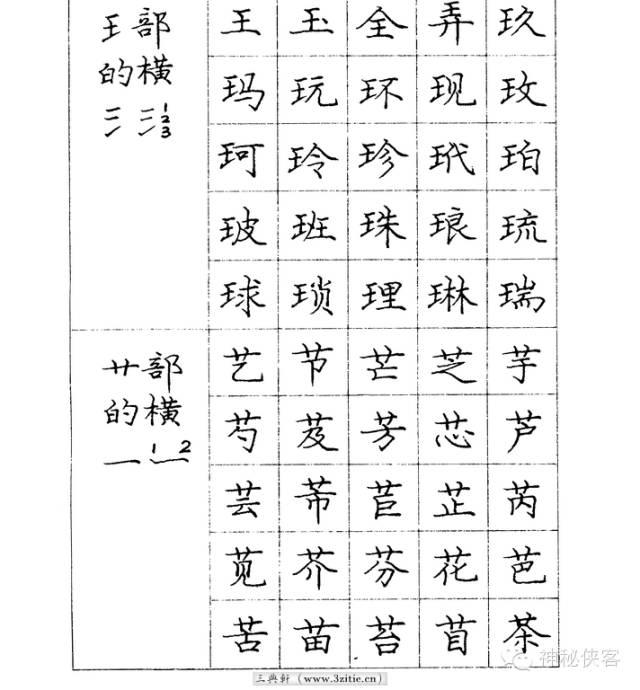 王部
的横
三 三 1 2 3
王 玉 全 弄 玖
玛 玩 环 现 玫
珂 玲 珍 玳 珀
玻 班 珠 琅 琉
球 琐 理 琳 瑞
艹部
的横
一 1 2
艺 节 芒 芝 芋
芍 芨 芳 芯 芦
芸 芾 苣 芷 芮
苋 芥 芬 花 芭
苦 苗 苔 苜 茶
神秘侠客
三典轩 (www.3zitie.cn)